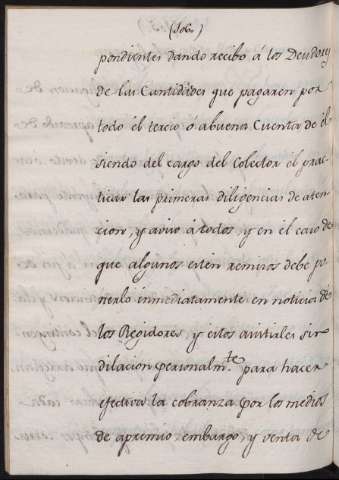 pondientes dando recibo á los Deudores
de las Cantidades que pagaren por
todo el tercio ó abuena Cuenta de él
siendo del cargo del Colector el prac-
ticar las primeras diligencias de aten-
cion, y aviso á todos, y en el caso de
que algunos estén remisos debe po-
nerlo inmediatamente en noticia de
los Regidores, y estos auxiliarles sin
dilacion personalm.te para hacer
efectiva la cobranza por los medios
de apremio embargo, y venta de